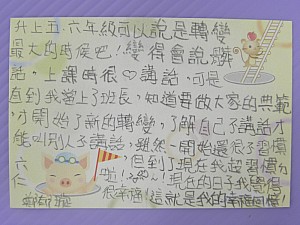 升上五、六年級可以說是轉變
最大的時候吧！變得會說髒
話，上課時很♡講話，可是
直到我當上了班長，知道要做大家的典範，
才開始了新的轉變，了解自己了講話才
能叫別人不講話，雖然一開始還很不習慣
，但到了現在我超習慣
六 啦！現在的日子我覺得
仁 很幸福！這就是我的幸福回憶！